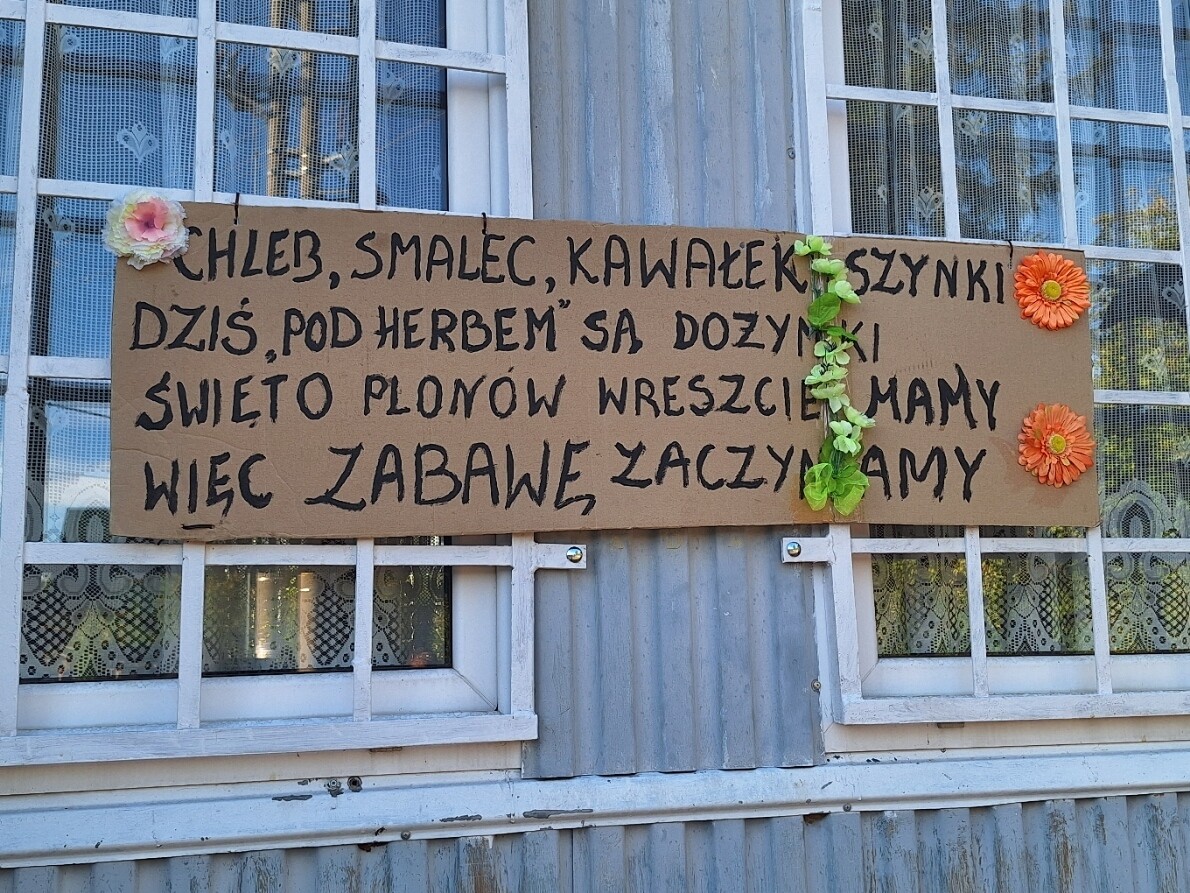 CHLEB, SMALEC, KAWAŁEK SZYNKI
DZIŚ „POD HERBEM" SĄ DOŻYNKI
ŚWIĘTO PLONÓW WRESZCIE MAMY
WIĘC ZABAWĘ ZACZYNAMY